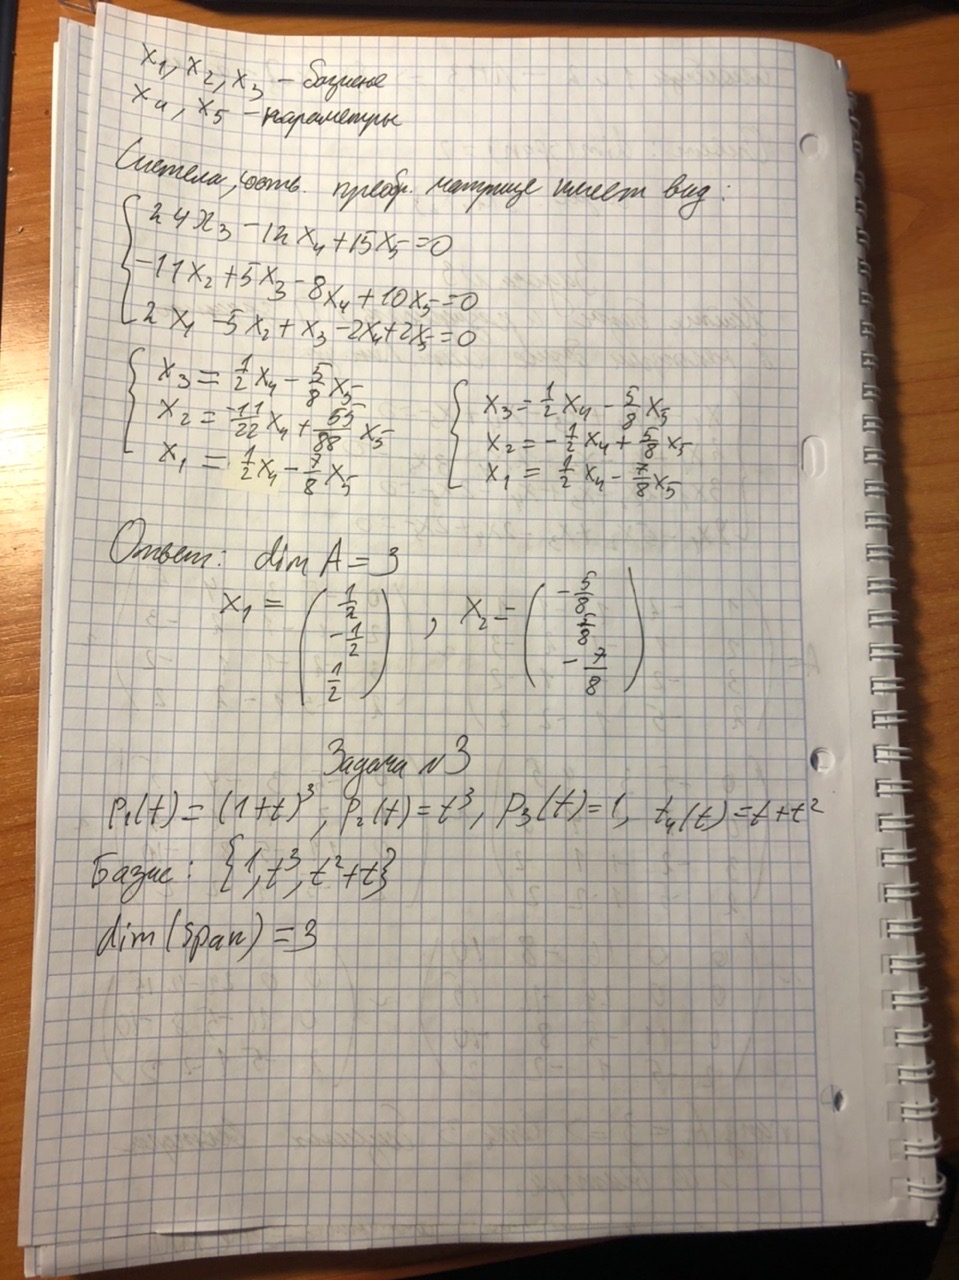 x₁, x₂, x₃ – базисные
x₄, x₅ – параметры
Система, соотв. преобр. матрице имеет вид:
24x₃ - 12x₄ + 15x₅ = 0
-11x₂ + 5x₃ - 8x₄ + 10x₅ = 0
2x₁ - 5x₂ + x₃ - 2x₄ + 2x₅ = 0
x₃ = 1/2 x₄ - 5/8 x₅
x₂ = -11/22 x₄ + 55/88 x₅
x₁ = 1/2 x₄ - 7/8 x₅
x₃ = 1/2 x₄ - 5/8 x₅
x₂ = -1/2 x₄ + 5/8 x₅
x₁ = 1/2 x₄ - 7/8 x₅
Ответ: dim A = 3
x₁ = (1/2 -1/2 1/2), x₂ = (-5/8 5/8 -7/8)
Задача №3
p₁(t) = (1+t)³, p₂(t) = t³, p₃(t) = 1, t₄(t) = t+t²
Базис: {1, t³, t²+t}
dim(span) = 3